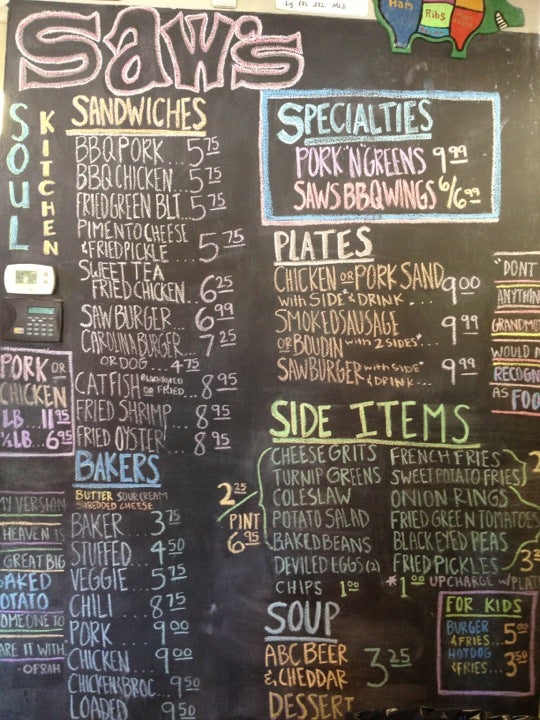 Ham
Ribs
SAW'S
SOUL
KITCHEN
SANDWICHES
BBQ PORK... 5 75
BBQ CHICKEN... 5 75
FRIED GREEN BLT... 5 75
PIMENTO CHEESE
& FRIED PICKLE... 5 75
SWEET TEA
FRIED CHICKEN... 6 25
SAW BURGER... 6 99
CAROLINA BURGER... 7 25
OR DOG... 4 75
CATFISH BLACKENED OR FRIED... 8 95
FRIED SHRIMP... 8 95
FRIED OYSTER... 8 95
PORK OR
CHICKEN
LB... 11 95
½ LB... 6 95
BAKERS
BUTTER SOUR CREAM
SHREDDED CHEESE
BAKER... 3 75
STUFFED... 4 50
VEGGIE... 5 75
CHILI... 8 75
PORK... 9 00
CHICKEN... 9 00
CHICKEN & BROC... 9 50
LOADED... 9 50
MY VERSION
HEAVEN IS
GREAT BIG
BAKED
POTATO
SOMEONE TO
ARE IT WITH
OPRAH
SPECIALTIES
PORK 'N GREENS 9 99
SAWS BBQ WINGS 6/6 99
PLATES
CHICKEN OR PORK SAND. 9 00
WITH SIDE & DRINK...
SMOKED SAUSAGE
OR BOUDIN WITH 2 SIDES* 9 99
SAWBURGER WITH SIDE*
& DRINK... 9 99
"DONT
ANYTHIN
GRANDMO
WOULD N
RECOGN
AS FOO
SIDE ITEMS
2 25
PINT
6 95
CHEESE GRITS
TURNIP GREENS
COLESLAW
POTATO SALAD
BAKED BEANS
DEVILED EGGS (2)
CHIPS 1 00
FRENCH FRIES
SWEET POTATO FRIES
ONION RINGS
FRIED GREEN TOMATOES
BLACK EYED PEAS
FRIED PICKLES
* 1 00 UPCHARGE W/ PLAT
SOUP
ABC BEER
& CHEDDAR 3 25
DESSERT
FOR KIDS
BURGER
& FRIES... 5 00
HOTDOG
& FRIES... 3 50